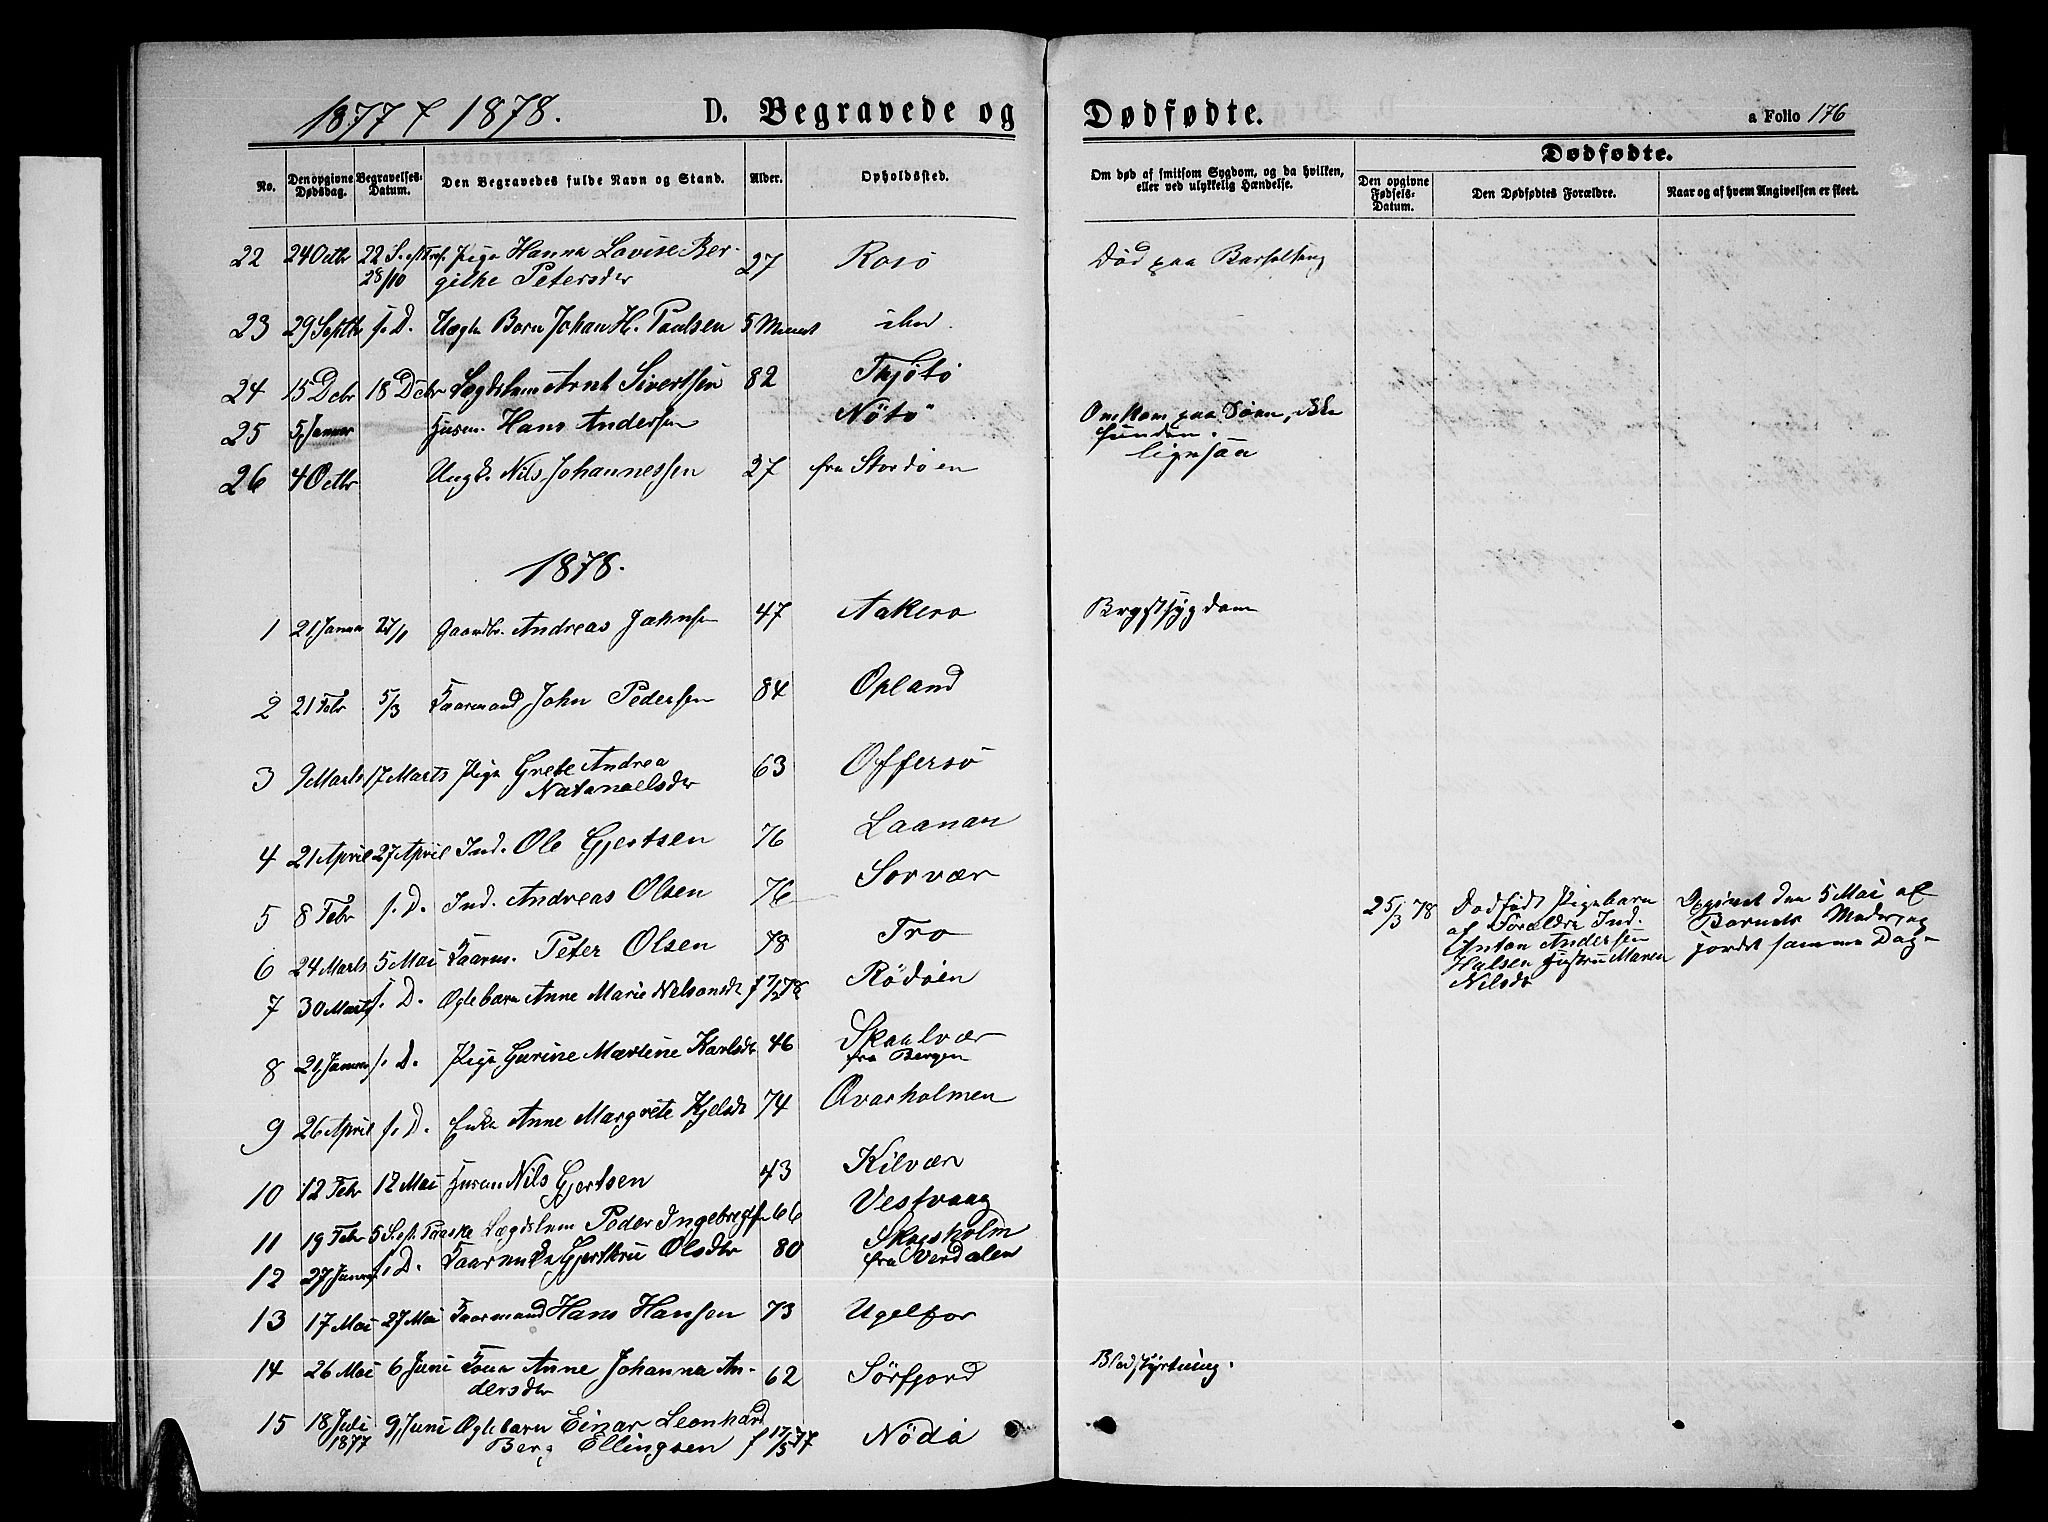 1877 & 1878.
D. Begravede og Dødfødte.
a Folio 176
No.
Den opgivne Dødsdag.
Begravelses-Datum.
Den Begravedes fulde Navn og Stand.
Alder.
Opholdssted.
Om død af smitsom Sygdom, og da hvilken,
eller ved ulykkelig Hændelse.
Dødfødte.
Den opgivne Fødsels-Datum.
Den Dødfødtes Forældre.
Naar og af hvem Angivelsen er skeet.
22 24 Octbr 22 S. e. Tref. Pige Hanna Lovise Ber- 27 Rosø Død paa Barselseng
28/10 githe Petersdr
23 29 Septbr s. D. Uægte Barn Johan H. Paulsen 5 Maaned
24 15 Dcbr 18 Dcbr Lægdslem Arnt Sivertsen 82 Thjøtø
25 5 Januar Husm. Hans Andersen Nøtø Omkom paa Søen, ikke
funden.
26 4 Octbr Ungk. Nils Johannessen 27 fra Stordøen ligesaa
1878.
1 21 Januar 27/1 Gaardbr. Andreas Jahnsen 47 Aakerø Brystsygdom
2 21 Febr 5/3 Kaarmand John Pedersen 84 Opland
3 9 Marts 17 Marts Pige Grete Andrea 63 Offersø
Natanaelsdr
4 21 April 27 April Ind. Ole Gjertsen 76 Laanan
5 8 Febr s. D. Ind. Andreas Olsen 76 Sorvær 25/3 78 Dødfødt Pigebarn Opgivet den 5 Mai af
af Foraldre Ind. Barnets Moder, og
6 24 Marts 5 Mai Kaarm. Peter Olsen 78 Tro Anton Andersen jordet samme Dag
Halsen Hustru Maren
7 30 Marts s. D. Ægtebarn Anne Marie Nelsensdt Rødøen Nilsdr
8 21 Januar s. D. Pige Gurine Martine Karlsdr 46 Skaalvær
fra Bergen
9 26 April s. D. Enke Anne Margrete Kjelsdt 74 Qvarholmen
10 12 Febr 12 Mai Husm Nils Gjertsen 43 Kilvær
11 19 Febr 5 S. e. Paaske Lægdslem Peder Ingebregtsn 66 Vestvaag
12 27 Januar s. D. Kaarenke Gjertru Olsdtr 80 Skogsholm
fra Verdalen
13 17 Mai 27 Mai Kaarmand Hans Hansen 73 Ugelfor
14 26 Mai 6 Juni Kone Anne Johanna An- 62 Sørfjord Blodstyrtning.
dersdtr
15 18 Juli 9 Juni Ægtebarn Einar Leonhard f 17/5 77 Nødø
1877 Berg Ellingsen